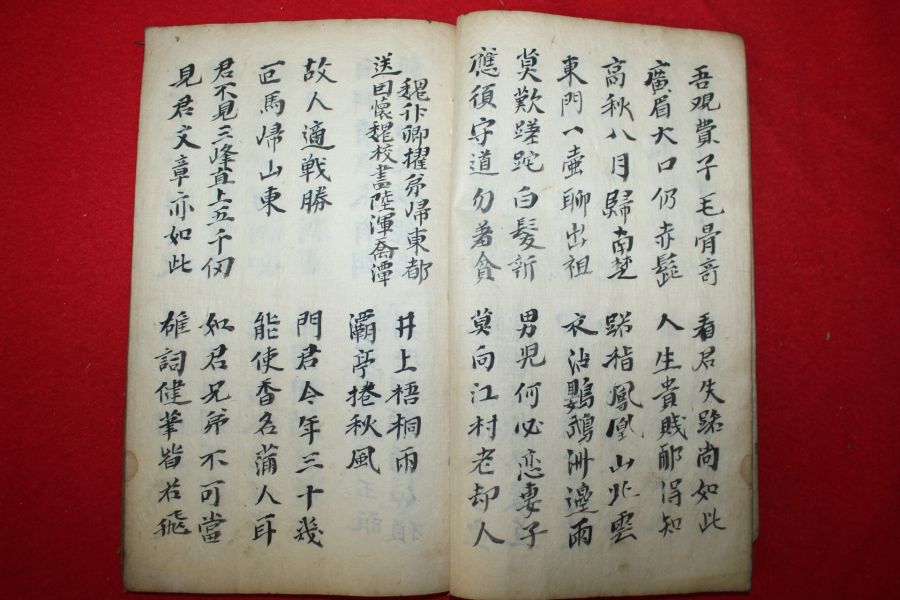 吾觀費子毛骨奇 看君失路尚如此
廣眉大口仍赤髭 人生貴賤那得知
高秋八月歸南楚 路指鳳凰山北雲
東門一壺聊出祖 衣沾鸚鵡洲邊雨
莫歎蹉跎白髮新 男兒何必戀妻子
應須守道勿著貪 莫向江村老却人
魏什卿擢弟帰東都 井上梧桐雨
送因懷魏校書陸渾喬潭 灞亭捲秋風
故人適戰勝 門君今年三十幾
匹馬帰山東 能使香名蒲人耳
君不見三峰直上五千仞 如君兄弟不可當
見君文章亦如此 雄詞健筆皆若飛